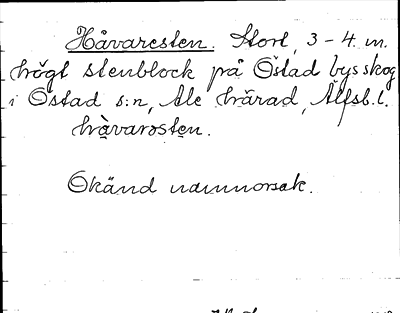 Håvaresten. Stort, 3-4 m.
högt stenblock på Östad bys skog
i Östad s:n, Ale härad, Älfsb. l.
hàvarostɛn.
Okänd namnorsak.